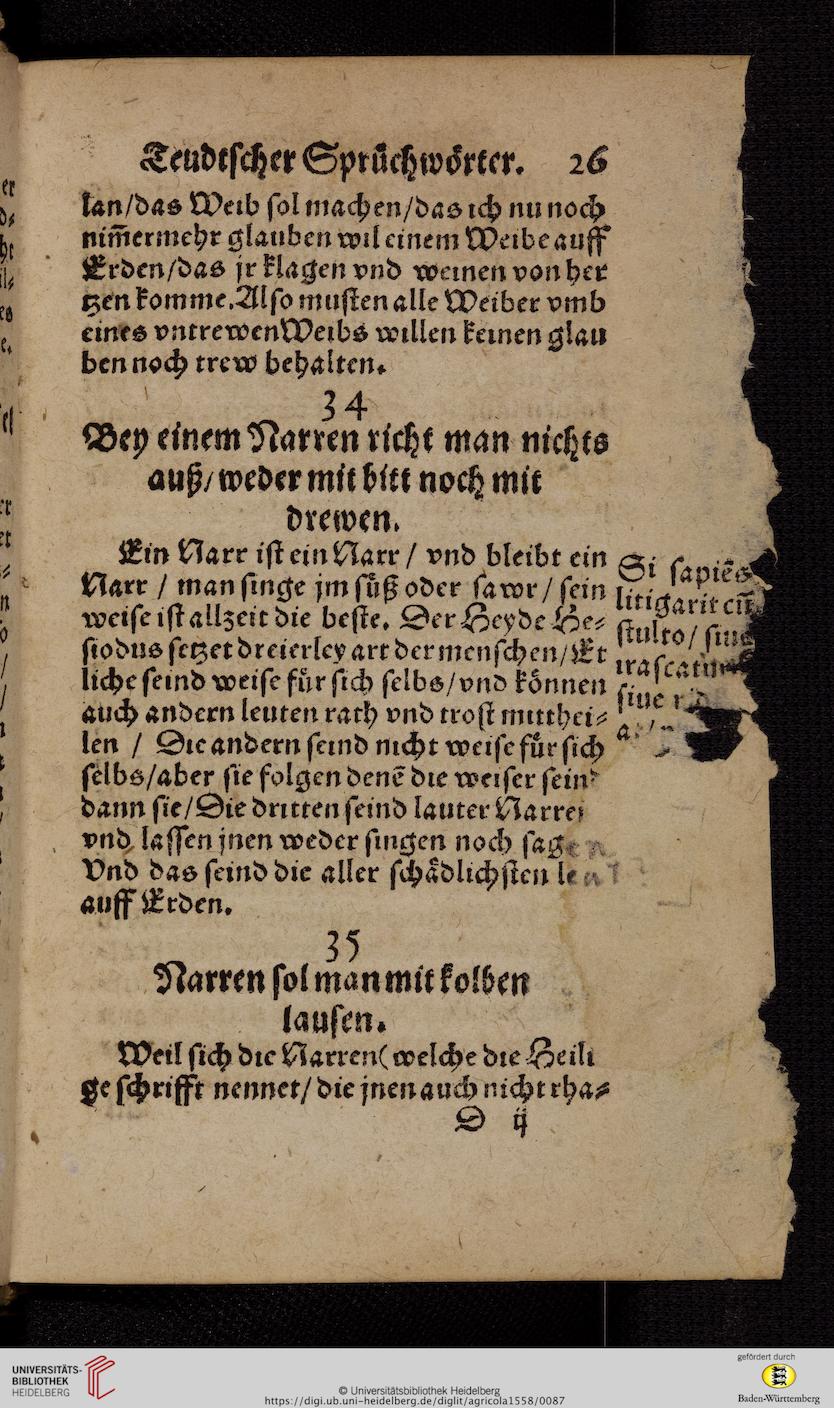 Teudtscher Sprüchwörter. 26
lan/das Weib sol machen/das ich nu noch
nim̄ermehr glauben wil einem Weibe auff
Erden/das jr klagen vnd weinen von her
tzen komme. Also musten alle Weiber vmb
eines vntrewen Weibs willen keinen glau
ben noch trew behalten.
34
Bey einem Narren richt man nichts
auß/weder mit bitt noch mit
drewen.
Ein Narr ist ein Narr / vnd bleibt ein
Narr / man singe jm süß oder sawr / sein
weise ist allzeit die beste. Der Heyde He⸗
siodus setzet dreierley art der menschen/Et
liche seind weise für sich selbs/vnd können
auch andern leuten rath vnd trost mitthei⸗
len / Die andern seind nicht weise für sich
selbs/aber sie folgen denē die weiser sein
dann sie/Die dritten seind lauter Narre
vnd lassen jnen weder singen noch sagen
Vnd das seind die aller schädlichsten
auff Erden.
Si sapiēs
litigarit cū
stulto/ siue
irascatur
siue
35
Narren sol man mit kolben
lausen.
Weil sich die Narren(welche die Heili
ge schrifft nennet/die jnen auch nicht rha⸗
D ij
UNIVERSITÄTS-
BIBLIOTHEK
HEIDELBERG
© Universitätsbibliothek Heidelberg
https://digi.ub.uni-heidelberg.de/diglit/agricola1558/0087
gefördert durch
Baden-Württemberg